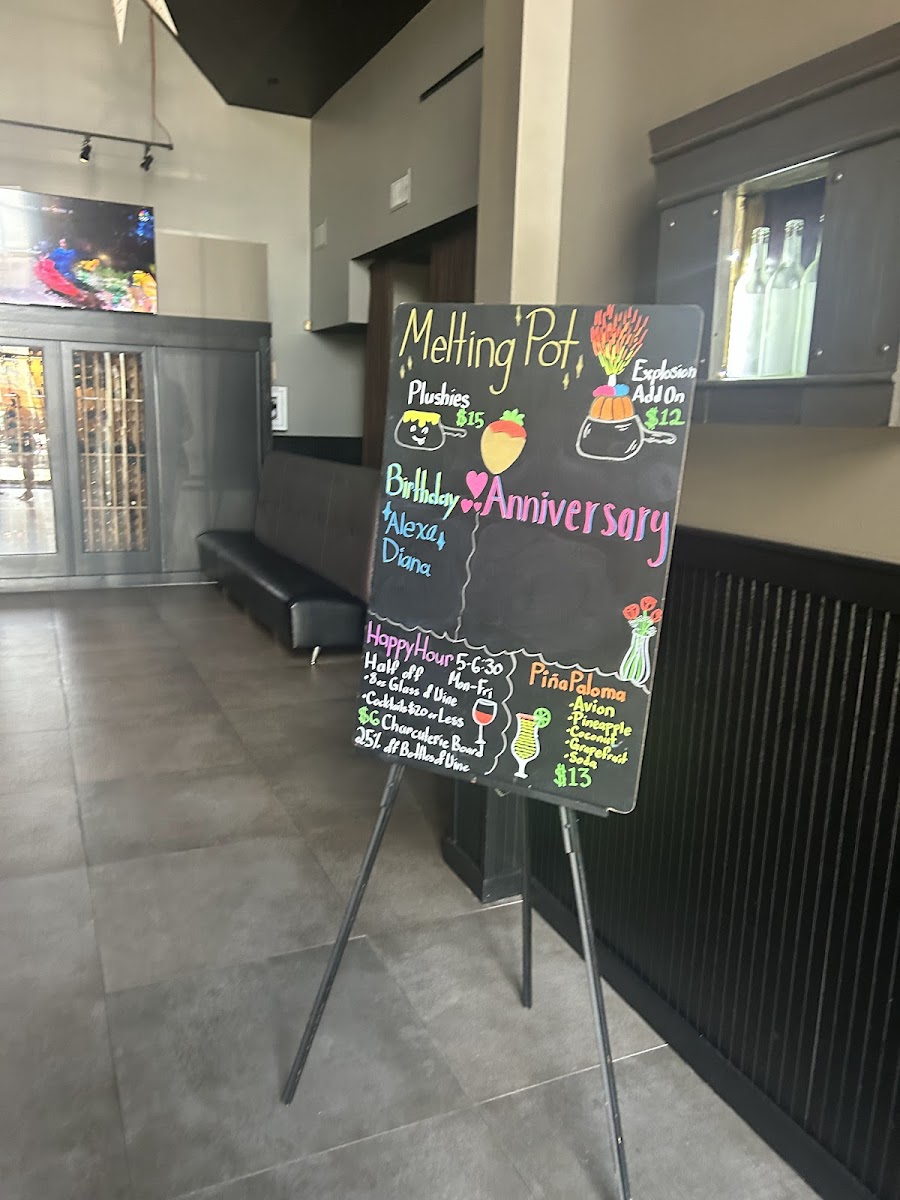 Melting Pot
Plushies
$15
Explosion
Add On
$12
Birthday
Anniversary
Alexa
Diana
Happy Hour 5-6:30
Mon-Fri
Half off
•8oz Glass of Wine
•Cocktails $20 or Less
$6 Charcuterie Board
25% off Bottles of Wine
Piña Paloma
•Avion
•Pineapple
•Coconut
•Grapefruit
•Soda
$13